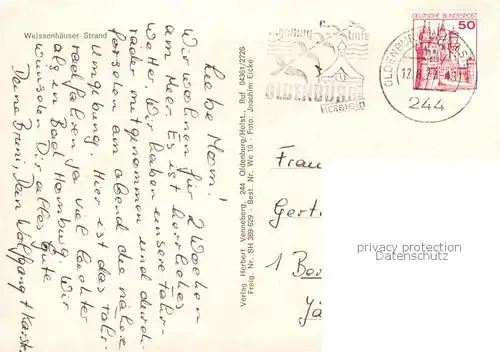 Weissenhäuser Strand
Liebe Mom!
Wir wohnen für 2 Wochen
am Meer. Es ist herrliches
Wetter. Wir haben unsere Fahr-
räder mitgenommen und durch-
forschen am abend die nähere
Umgebung. Hier ist das Fahr-
radfahren ja viel leichter
als in Bad Homburg. Wir
wünschen Dir alles Gute
Deine Bruni, Dein Wolfgang + Karst.
Verlag Herbert Venneberg, 244 Oldenburg/Holst., Ruf 04361/2726
Freig. Nr. SH 369-629 - Best. Nr. We 10 - Foto: Joachim Eicke
OLDENBURG
Holstein
DEUTSCHE BUNDESPOST
50
OLDENBURG
244
Frau
Gert
1 Be
privacy protection
(c) Ansichtskartenversand.com